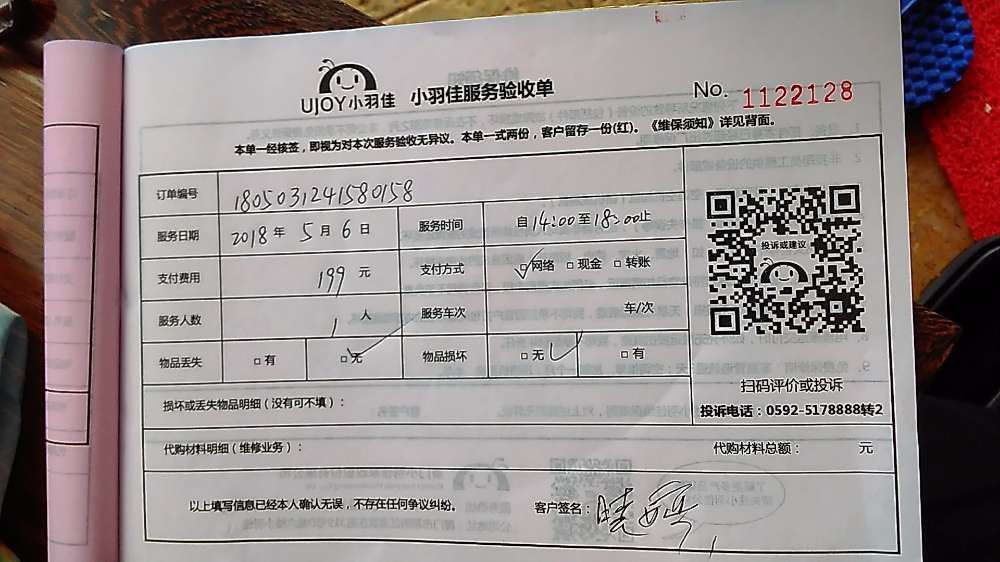 UJOY小羽佳 小羽佳服务验收单 No. 1122128
本单一经核签，即视为对本次服务验收无异议。本单一式两份，客户留存一份(红)。《维保须知》详见背面。
订单编号 1805031241580158
服务日期 2018年5月6日 服务时间 自14:00至18:00止
投诉或建议
支付费用 199元 支付方式 ☑网络 □现金 □转账
服务人数 1人 服务车次 车/次
物品丢失 □有 ☑无 物品损坏 ☑无 □有
扫码评价或投诉
损坏或丢失物品明细（没有可不填）：
投诉电话：0592-5178888转2
代购材料明细（维修业务）： 代购材料总额： 元
以上填写信息已经本人确认无误，不存在任何争议纠纷。 客户签名：